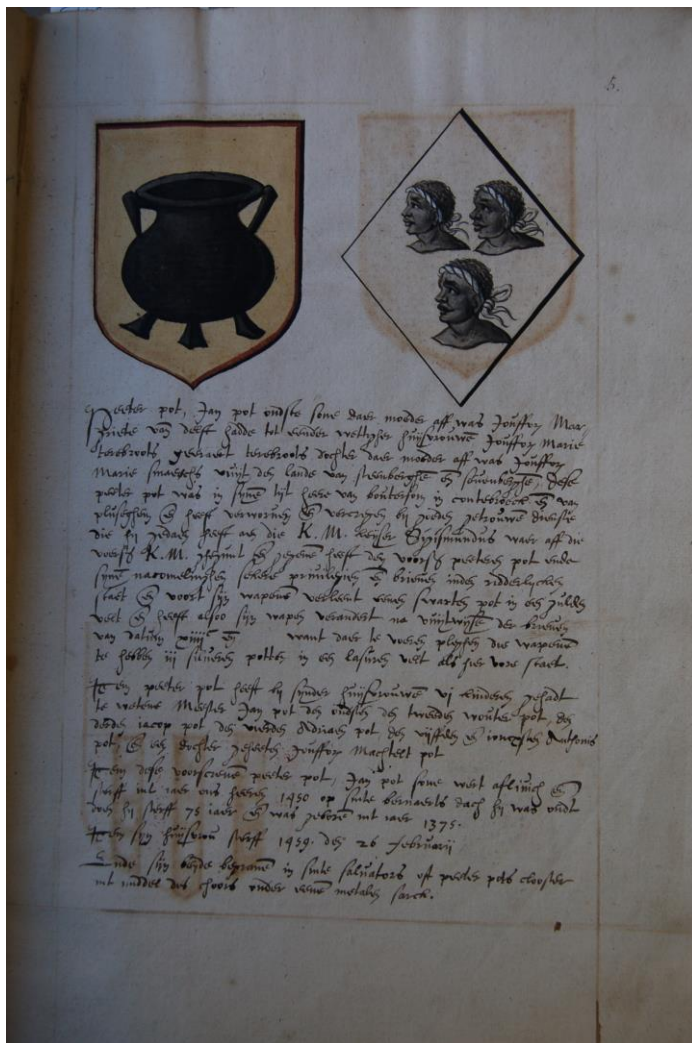 5.
Peeter pot, Jan pot oudste sone daer moeder aff was Jouffrou Mar
griete van delft hadde tot eender wettigher huijsvrouwen Jouffrou Marie
terebroots geeraert terebroots dochter daer moeder aff was Jouffrou
Marie smaeschs uuijt den lande van steenberghe en sevenberghe, dese
peeter pot was in sijnē tijt heere van bouterson in contebroeck en van
en heeft verworven en vercregen bij zijnen getrouwen dienste
die hij gedaen heeft aen die K. M. keijser Sigismundus waer aff die
voersz K. M. gejont en gegeven heeft den voersz peeteren pot ende
sijnē nacomelinghen sekere privilegien en brieven inden ridderlijcken
staet en voort sijn wapene verleent eenen swarten pot in een gulden
velt en heeft alsoo sijn wapen verandert na uuijtwijsē der brieven
van datum xiiijc en want daer te voeren plegen die wapene
te hebben iij silveren potten in een lasuren velt als hier vore staet.
Item peeter pot heeft bij sijnder huijsvrouwē vj kinderen gehadt
te wetene Meester Jan pot den oudsten den tweeden wouter pot, den
derde iacop pot den vierden Adriaen pot, den vijffsten en ioncxsten Anthonis
pot, en een dochter geheeten Jouffrou Machtelt pot
Item dese voorscrevē peeter pot, Jan pot sone wert aflivich en
sterff int iaer ons heeren 1450 op sinte bernaerts dach hij was oudt
doen hij sterff 75 iaer en was geboren int iaer 1375.
Item sijn huijsvrou sterff 1459. den 26 februarij
Ende sijn beijde begraven in sinte salvators oft peeter pots clooster
int middel des choors onder eenen metalen sarck.